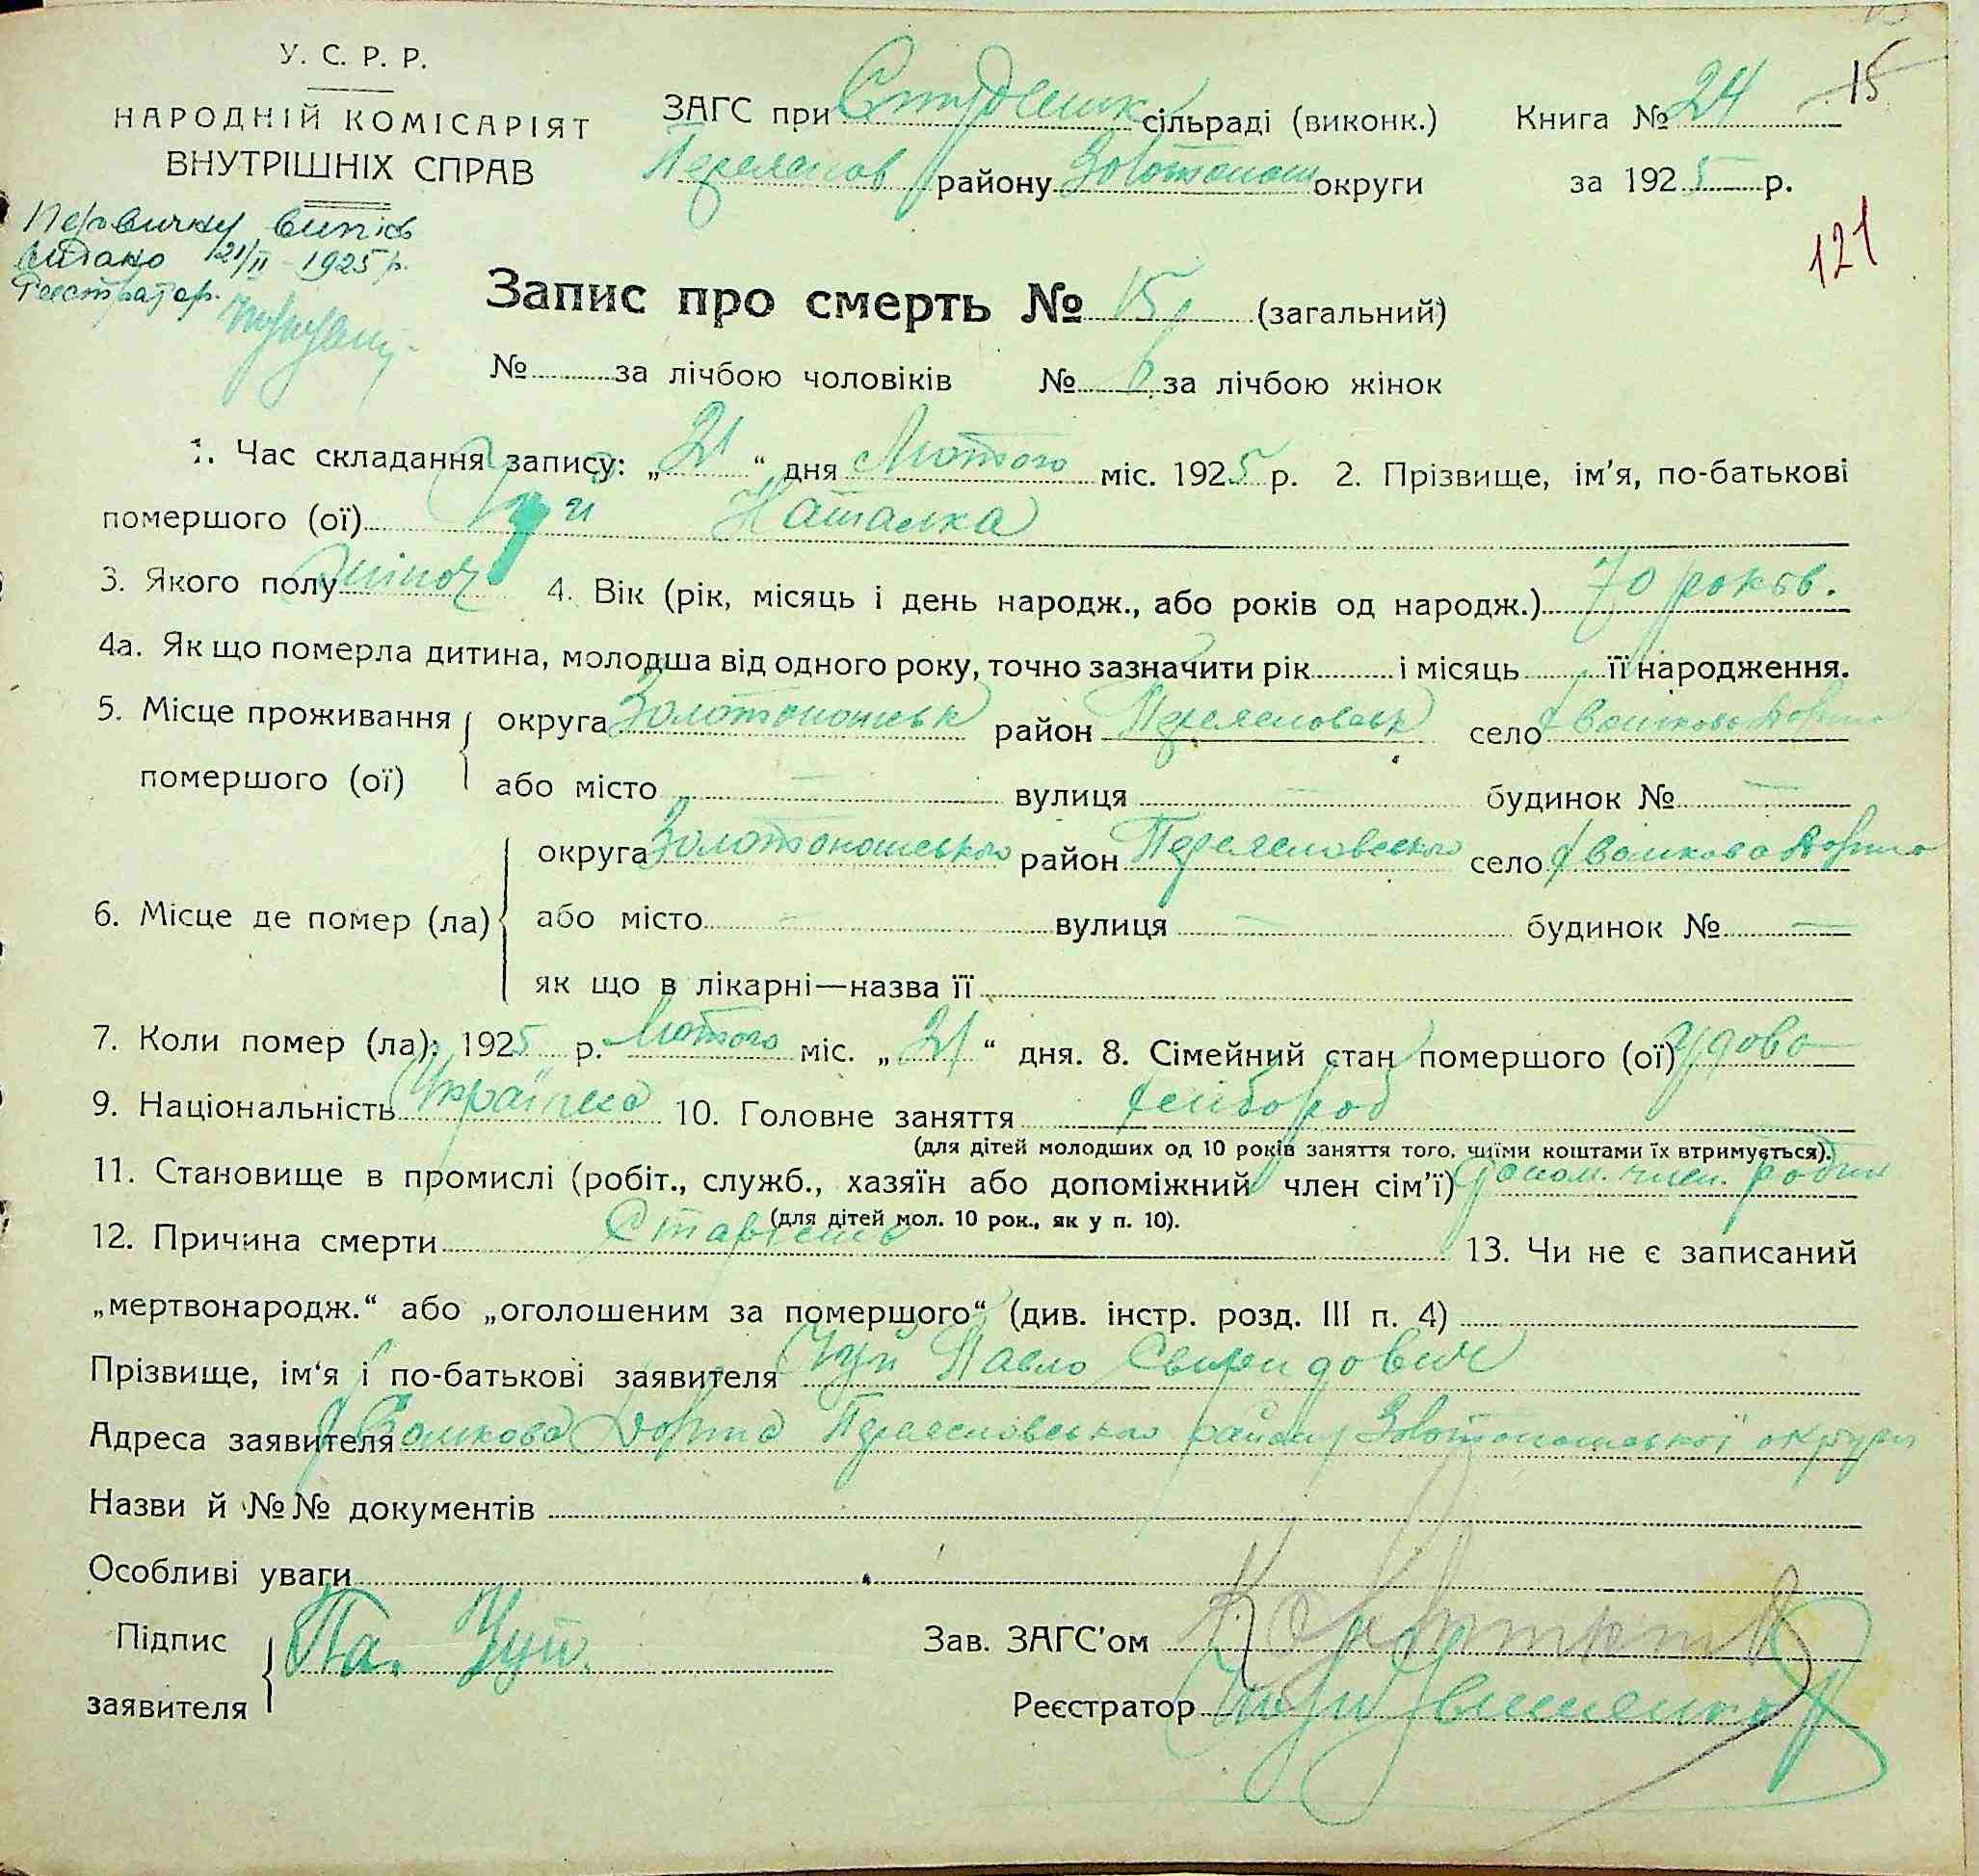 15
У. С. Р. Р.
НАРОДНІЙ КОМІСАРІЯТ
ВНУТРІШНІХ СПРАВ
ЗАГС при Студеник сільраді (виконк.)
Книга № 24
Переяслов району Золотонош округи
за 1925 р.
Первичну випись
видано 21/II - 1925 р.
Реєстратор.
121
Запис про смерть № 15 (загальний)
№ за лічбою чоловіків № 6 за лічбою жінок
1. Час складання запису: „21“ дня Лютого міс. 1925 р. 2. Прізвище, ім'я, по-батькові
помершого (ої) Чуй Наталка
3. Якого полу жіноч 4. Вік (рік, місяць і день народж., або років од народж.) 70 років.
4а. Як що померла дитина, молодша від одного року, точно зазначити рік і місяць її народження.
5. Місце проживання помершого (ої) округа Золотоношськ район Переясловськ село
або місто — вулиця — будинок № —
6. Місце де помер (ла) округа Золотоношського район Переясловського село
або місто — вулиця — будинок № —
як що в лікарні—назва її
7. Коли помер (ла): 1925 р. Лютого міс. „21“ дня. 8. Сімейний стан помершого (ої) удова
9. Національність Українка 10. Головне заняття хлібороб
(для дітей молодших од 10 років заняття того, чиїми коштами їх втримується).
11. Становище в промислі (робіт., служб., хазяїн або допоміжний член сім'ї) допом. член. родин
(для дітей мол. 10 рок., як у п. 10).
12. Причина смерти Старість 13. Чи не є записаний
„мертвонародж.“ або „оголошеним за померщого“ (див. інстр. розд. III п. 4)
Прізвище, ім'я і по-батькові заявителя Чуй Павло Свиридович
Адреса заявителя Переясловського району Золотоношської округи
Назви й №№ документів
Особливі уваги
Підпис заявителя Па. Чуй.
Зав. ЗАГС'ом
Реєстратор